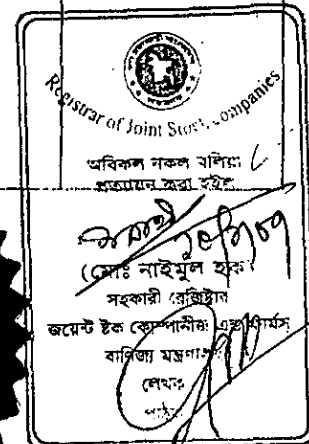 Registrar of Joint Stock Companies
অবিকল নকল বলিয়া
প্রত্যায়ন করা হইল
(মোঃ নাইমুল হক)
সহকারী রেজিষ্ট্রার
জয়েন্ট ষ্টক কোম্পানীজ এন্ড ফার্মস
বাণিজ্য মন্ত্রণালয়
লেখক
পাঠক